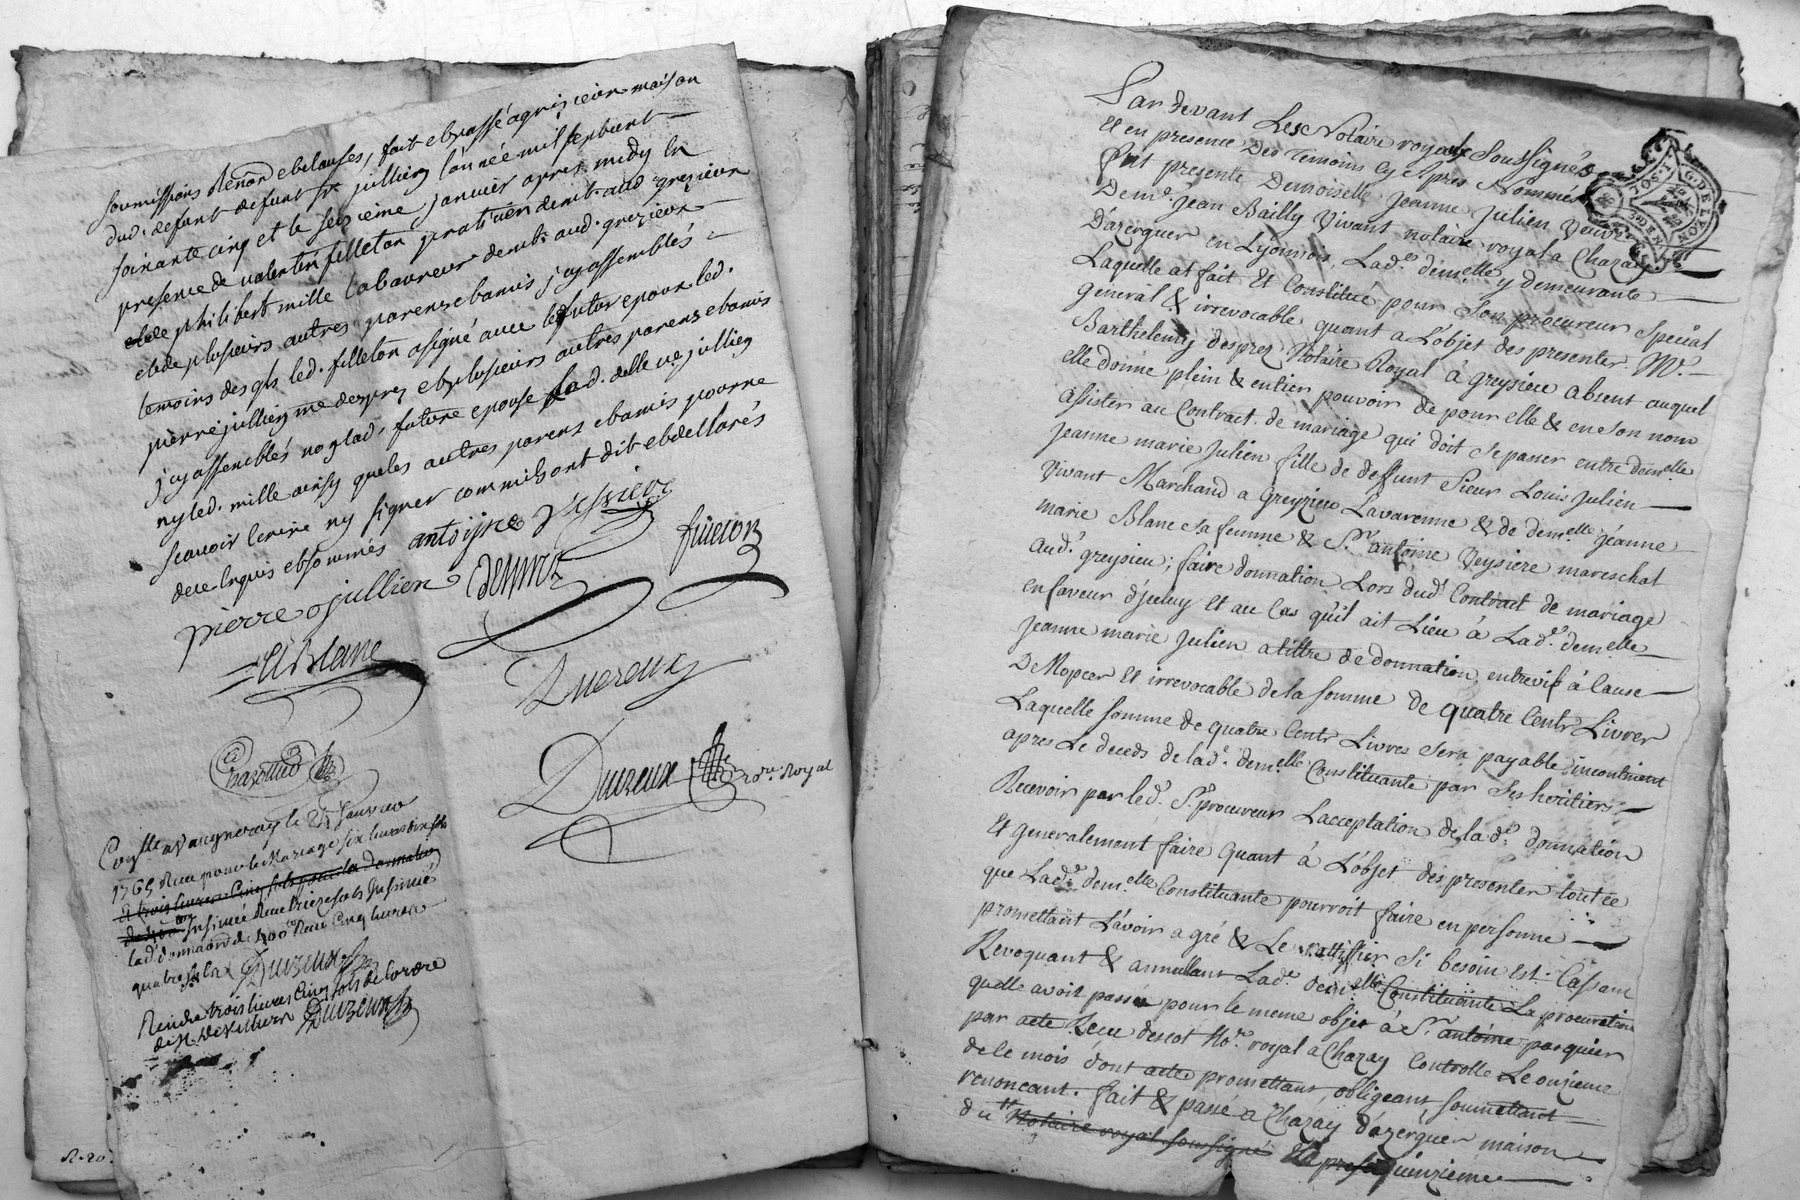 soumissions Renôn et clauses, fait et passé a grisieu maison
dud. defunt defunt Sr jullien l'année mil sept cent
soixante cinq et le seizième janvier apres midy en
presence de valentin filleton praticien demt. aud grezieux
et de philibert mille laboureur demt. aud. grezieu
et de plusieurs autres parens et amis j'cy assemblés
temoins des qls led. filleton a signé avec le futur epoux led.
pierre jullien me desprez et plusieurs autres parens et amis
j'cy assemblés no glad. future epouse lad. delle ve jullien
ny led. mille ainsy queles autres parens et amis pour ne
scavoir l'ecrire ny signer comm ils ont dit et declarés
de ce enquis et sommés antoine
pierre jullien desprez filleton
Blanc
Duzeux
Duzeux no.re Royal
Conlle a vaugneray le Janvier
1765 Reçu pour le Mariage six livres dix sols
et trois livres Cinq sols pour la donnation
de 400 Insinué Reçu treize sols Insinué
lad. donnaon de 400 Reçu Cinq livres
quatre sols Duzeux
Rendu trois livres Cinq sols de l'ordre
de Mr Devilliers Duzeux
R. 20.
G. DE LYON
Par devant Les Notaire royaux Soussignés
Et en presence Des Temoins Cy Apres Nommés
Fut presente Demoiselle Jeanne Julien Veuve
De mr. Jean Bailly Vivant notaire royal a Chazay
D'azergues en Lyonnois, Lade. demelle y demeurante
Laquelle at fait Et Constitué pour Son procureur Special
General & irrevocable quant a L'objet des presentes Mr.
Barthelemy desprez Notaire Royal à greysieu absent auquel
elle donne plein & entier pouvoir de pour elle & en son nom
assister au Contract de mariage qui doit Se passer entre demelle
Jeanne marie Julien fille de deffunt Sieur Louis Julien
Vivant Marchand a Greyzieu Lavarenne & de demelle jeanne
marie Blanc sa femme & Sr. antoine Veysiere mareschal
audt greysieu; faire donnation Lors dudt Contract de mariage
en faveur d'jceluy Et au Cas qu'il ait Lieu à Lade. demelle
Jeanne marie Julien a tittre de donnation entrevif à Cause
De Mopcer Et irrevocable de la somme de quatre Cents Livres
Laquelle somme de quatre Cents Livres Sera payable incontinent
apres Le deceds de lade. demelle Constituante par Ses heritiers
Recevoir par led. Sr. procureur L'acceptation de lade. donnation
Et generalement faire quant à L'objet des presentes tout ce
que Lade. demelle Constituante pourroit faire en personne
promettant L'avoir agré & Le rattiffier Si besoin est. Cassant
Revoquant & annullant Lade demelle Constituante La procuration
quelle avoit passée pour le meme objet à Sr. antoine pasquier
par acte Recu descot Nore. royal a Chazay Controlle Le onzieme
de le mois dont acte promettant, obligeant, soumettant
renoncant. fait & passé a Chazay d'azergues maison
du nre Notaire royal soussigné Le quinzieme